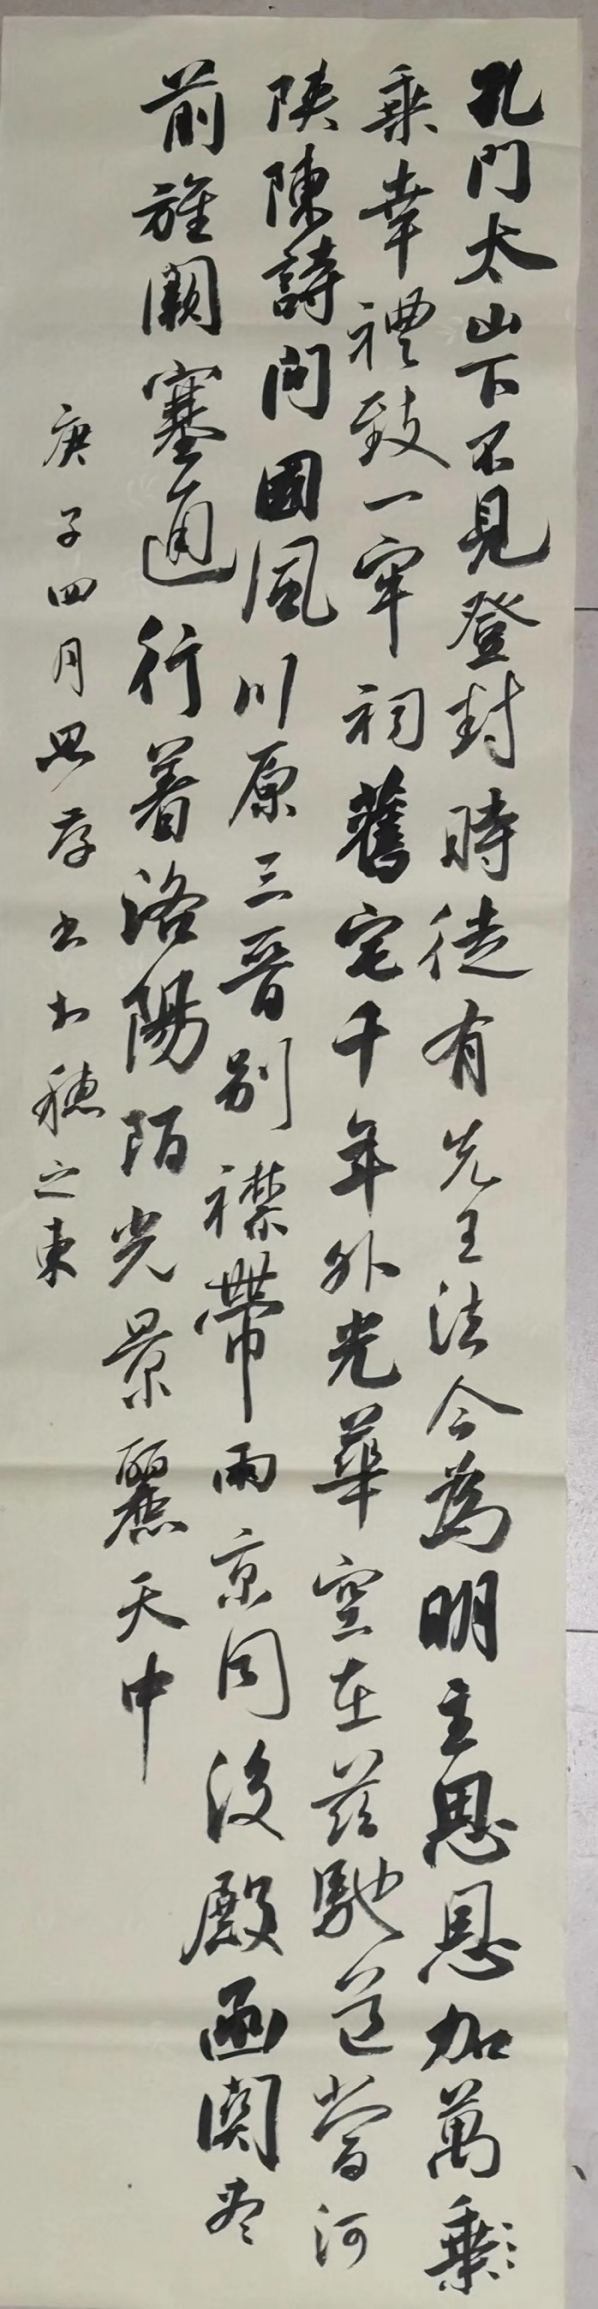 孔門太山下不見登封時徒有先王法今為明主恩恩加萬乘
乘幸禮致一牢祠舊宅千年外光華空在茲馳道當河
陝陳詩問國風川原三晉別襟帶兩京同後殿函關盡
前旌闕塞通行看洛陽陌光景麗天中
庚子四月思存書於穗之東